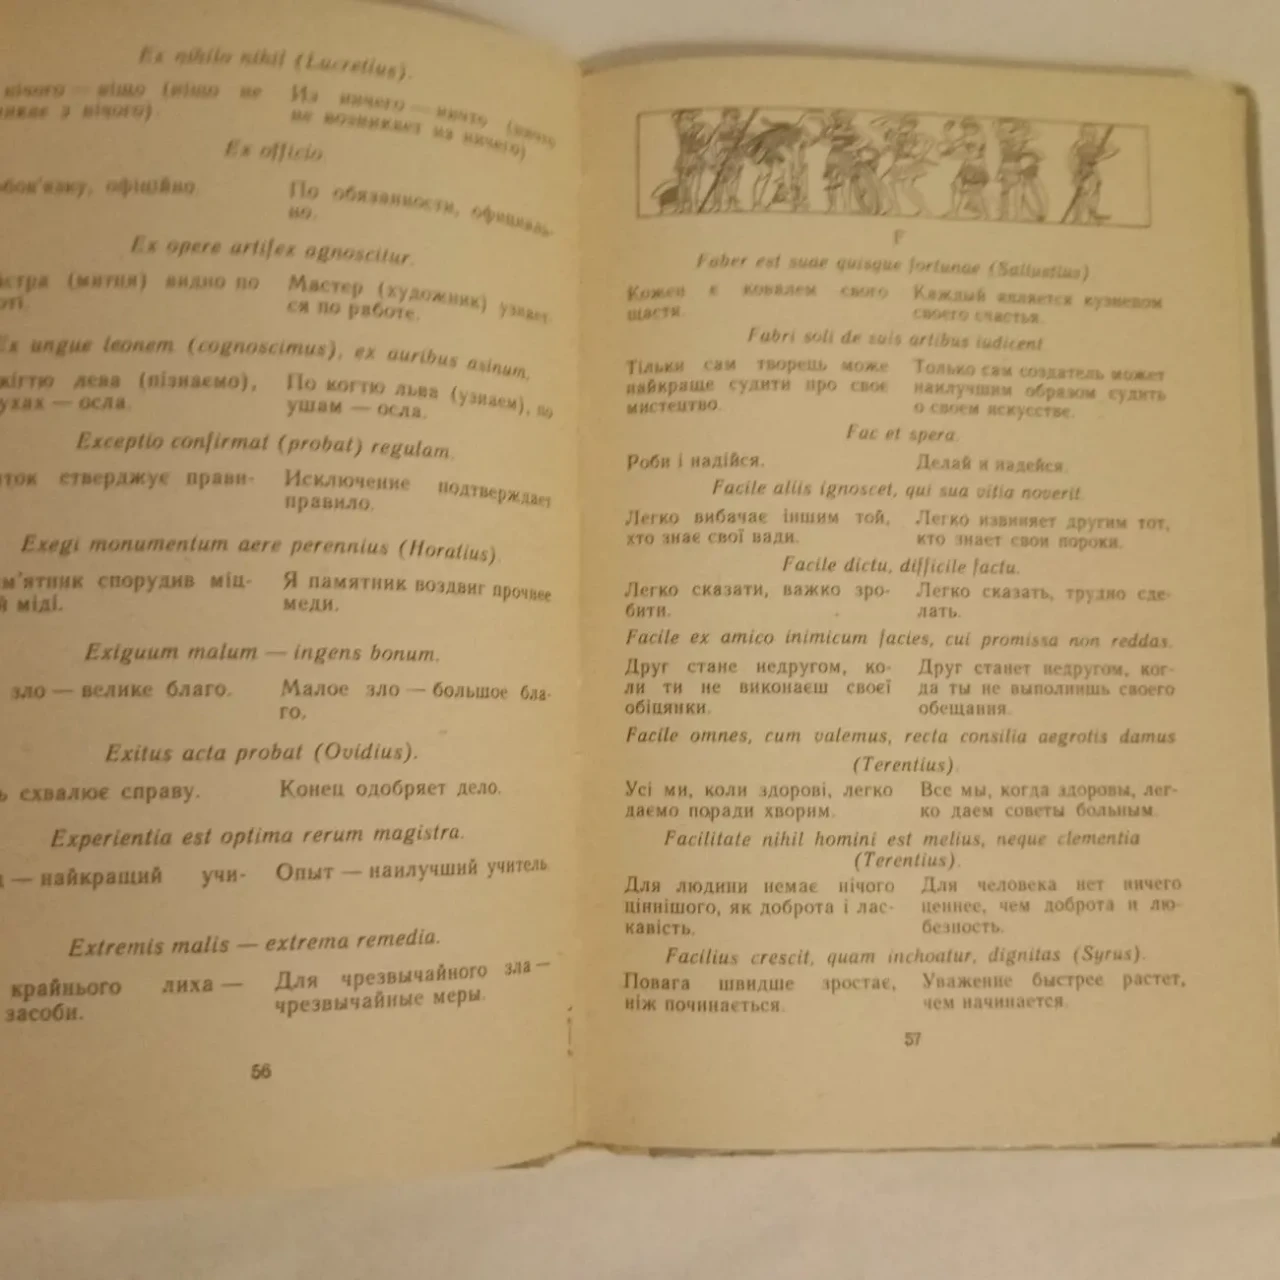 Ex nihilo nihil (Lucretius).
нічого — ніщо (ніщо не
з нічого).
Из ничего — ничто (ничто
не возникает из ничего)
Ex officio.
обов'язку, офіційно.
По обязанности, официаль-
но.
Ex opere artifex agnoscitur.
(митця) видно по
Мастер (художник) узнает-
ся по работе.
Ex ungue leonem (cognoscimus), ex auribus asinum.
лева (пізнаємо),
— осла.
По когтю льва (узнаем), по
ушам — осла.
Exceptio confirmat (probat) regulam.
ток стверджує прави-
Исключение подтверждает
правило.
Exegi monumentum aere perennius (Horatius).
м'ятник спорудив міц-
й міді.
Я памятник воздвиг прочнее
меди.
Exiguum malum — ingens bonum.
зло — велике благо.
Малое зло — большое бла-
го.
Exitus acta probat (Ovidius).
ь схвалює справу.
Конец одобряет дело.
Experientia est optima rerum magistra.
— найкращий учи-
Опыт — наилучший учитель
Extremis malis — extrema remedia.
крайнього лиха —
засоби.
Для чрезвычайного зла —
чрезвычайные меры.
56
F
Faber est suae quisque fortunae (Sallustius)
Кожен є ковалем свого
щастя.
Каждый является кузнецом
своего счастья.
Fabri soli de suis artibus iudicent.
Тільки сам творець може
найкраще судити про своє
мистецтво.
Только сам создатель может
наилучшим образом судить
о своем искусстве.
Fac et spera.
Роби і надійся.
Делай и надейся.
Facile aliis ignoscet, qui sua vitia noverit.
Легко вибачає іншим той,
хто знає свої вади.
Легко извиняет другим тот,
кто знает свои пороки.
Facile dictu, difficile factu.
Легко сказати, важко зро-
бити.
Легко сказать, трудно сде-
лать.
Facile ex amico inimicum facies, cui promissa non reddas.
Друг стане недругом, ко-
ли ти не виконаєш своєї
обіцянки.
Друг станет недругом, ког-
да ты не выполнишь своего
обещания.
Facile omnes, cum valemus, recta consilia aegrotis damus
(Terentius).
Усі ми, коли здорові, легко
даємо поради хворим.
Все мы, когда здоровы, лег-
ко даем советы больным.
Facilitate nihil homini est melius, neque clementia
(Terentius).
Для людини немає нічого
ціннішого, як доброта і лас-
кавість.
Для человека нет ничего
ценнее, чем доброта и лю-
безность.
Facilius crescit, quam inchoatur, dignitas (Syrus).
Повага швидше зростає,
ніж починається.
Уважение быстрее растет,
чем начинается.
57